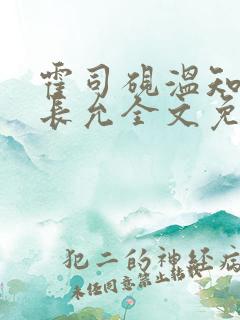 霍司砚温知
长允全文免
犯二的神经病
未经同意禁止转载